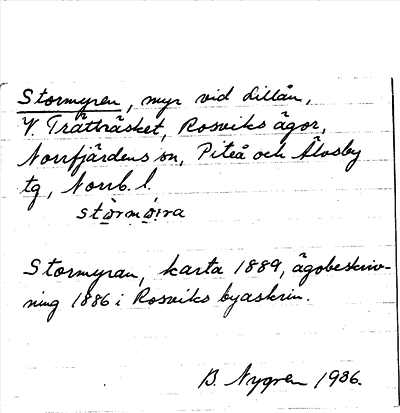 Stormyren, myr vid Lillån,
V. Trätträsket, Rosviks ägor,
Norrfjärdens sn, Piteå och Älvsby
tg, Norrb. l.
stòrmo̱i̱ra
Stormyran, karta 1889, ägobeskriv-
ning 1886 i Rosviks byaskrin.
B. Nygren 1936.